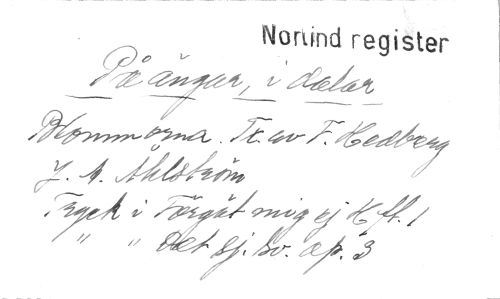 Norlind register
På ängar, i dalar
Blommorna. Tr. av F. Hedberg
J. A. Ahlström
Tryck i Förgät mig ej Hft. 1
" " Det sj. Sv. op. 3